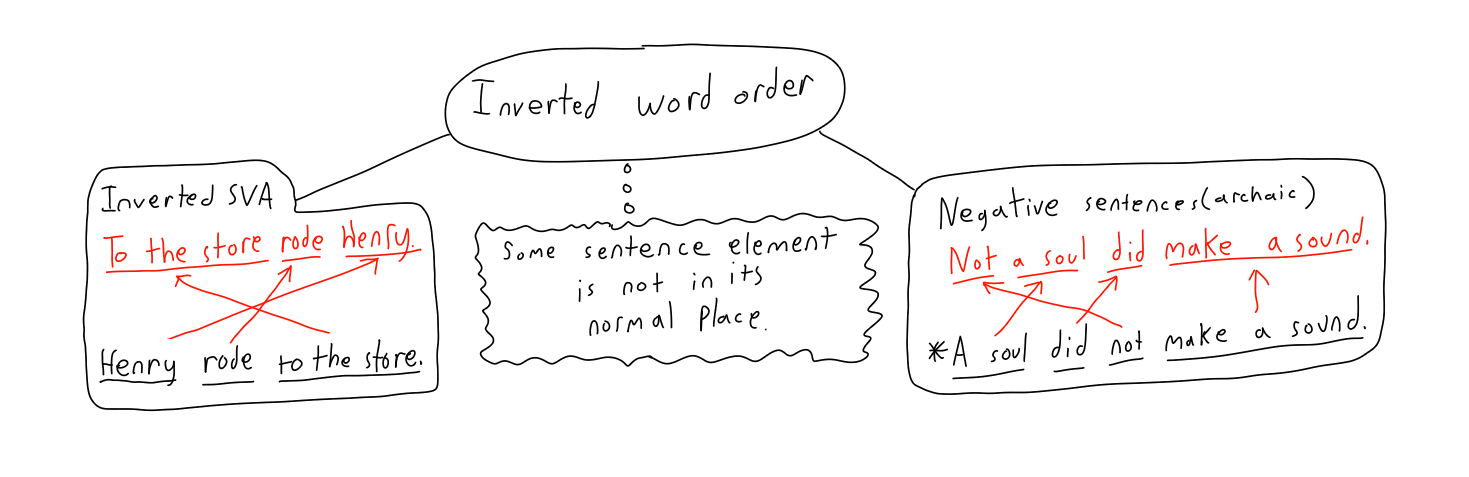 Inverted word order
Inverted SVA
To the store rode Henry.
Henry rode to the store.
Some sentence element
is not in its
normal place.
Negative sentences (archaic)
Not a soul did make a sound.
*A soul did not make a sound.